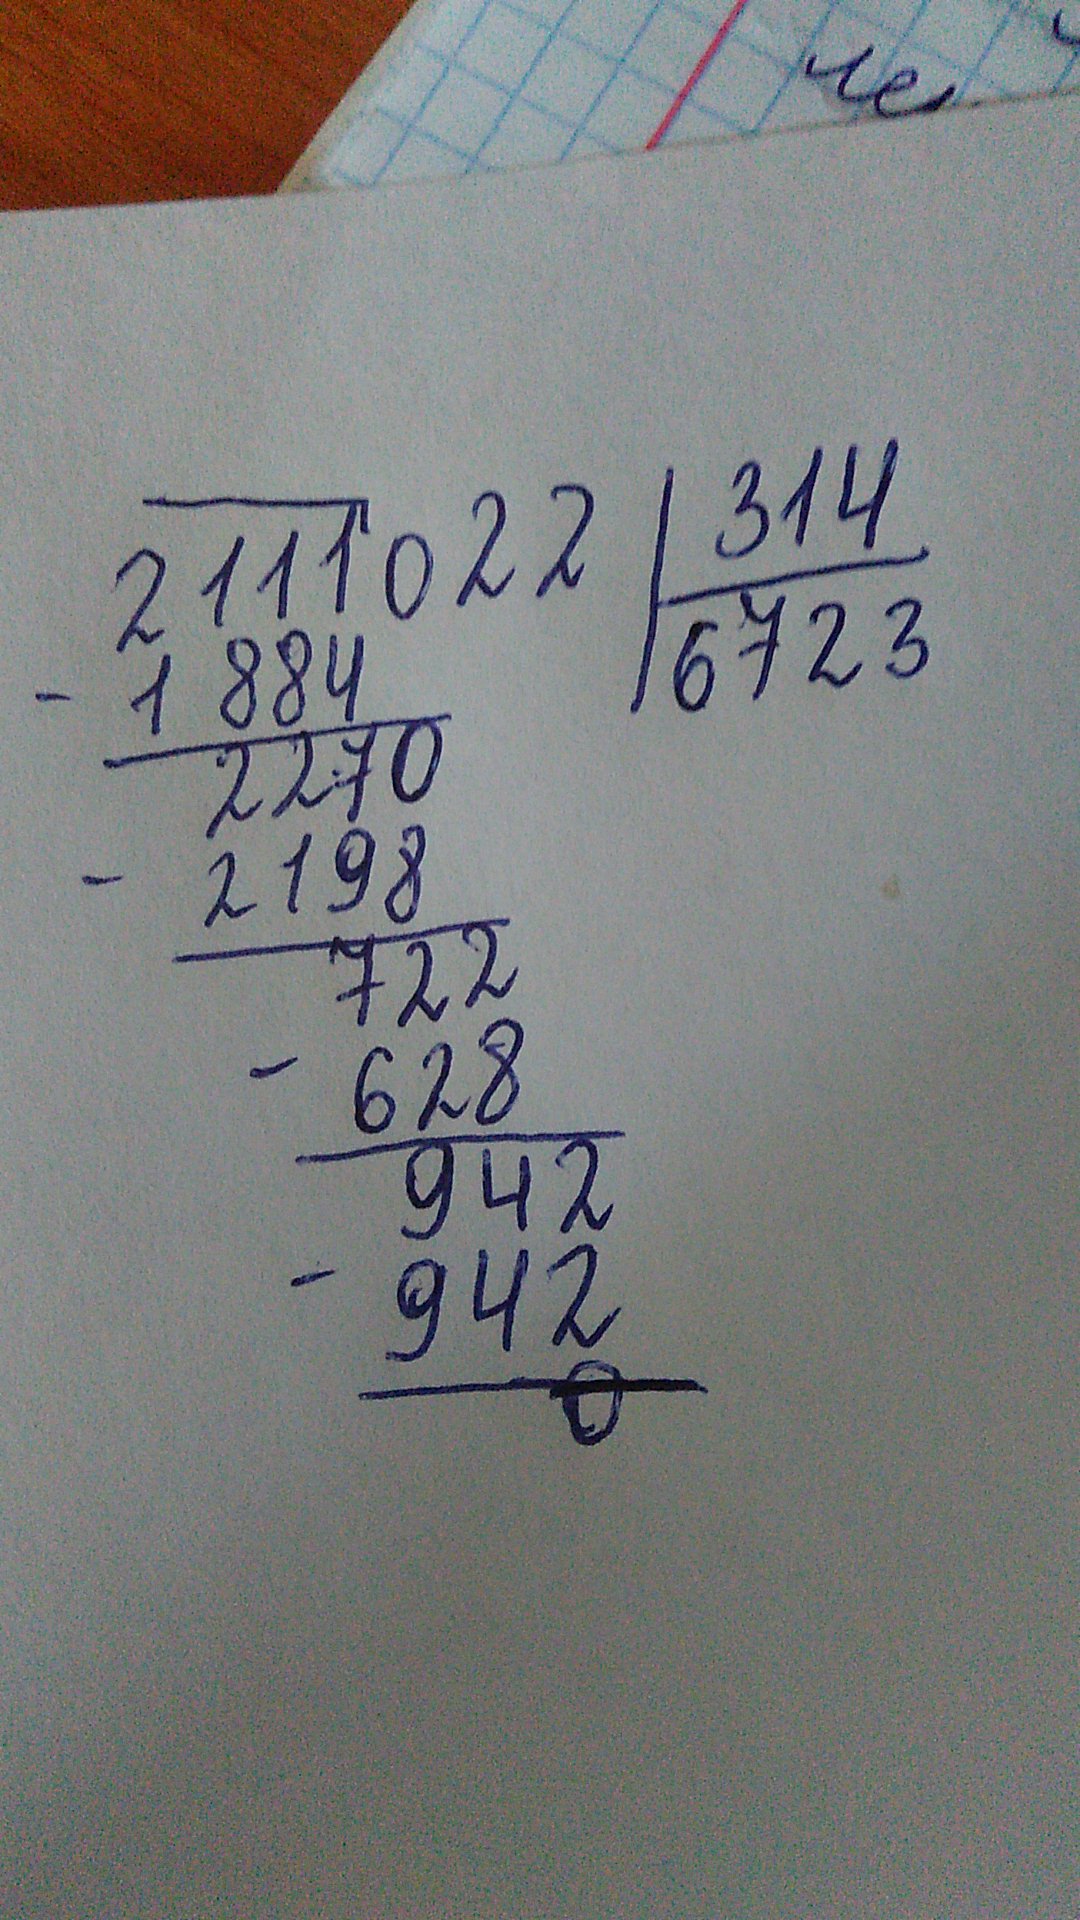 2111022 | 314
6723
- 1884
2270
- 2198
722
- 628
942
- 942
0